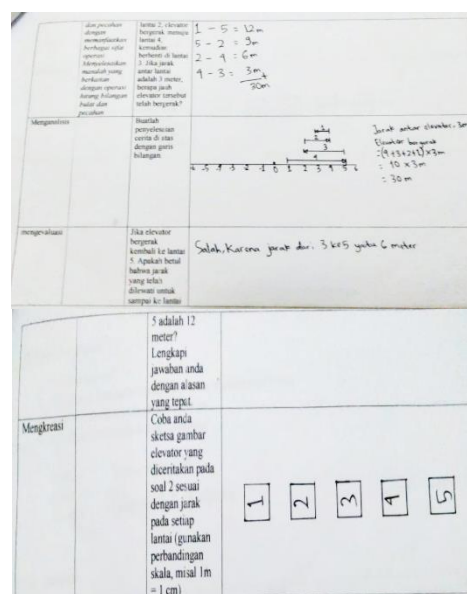 dan pecahan
dengan
memanfaatkan
berbagai sifat
operasi
Menyelesaikan
masalah yang
berkaitan
dengan operasi
hitung bilangan
bulat dan
pecahan
lantai 2, elevator
bergerak menuju
lantai 4,
kemudian
berhenti di lantai
3. Jika jarak
antar lantai
adalah 3 meter,
berapa jauh
elevator tersebut
telah bergerak?
1 - 5 = 12m
5 - 2 = 9m
2 - 4 = 6m
4 - 3 = 3m
+
30m
Menganalisis
Buatlah
penyelesaian
cerita di atas
dengan garis
bilangan
1
2
3
4
-6 -5 -4 -3 -2 -1 0 1 2 3 4 5 6
Jarak antar elevator. 3m
Elevator bergerak
: (4+3+2+1) x 3m
: 10 x 3m
: 30 m
mengevaluasi
Jika elevator
bergerak
kembali ke lantai
5. Apakah betul
bahwa jarak
yang telah
dilewati untuk
sampai ke lantai
Salah, Karena jarak dari 3 ke 5 yaitu 6 meter
5 adalah 12
meter?
Lengkapi
jawaban anda
dengan alasan
yang tepat.
Mengkreasi
Coba anda
sketsa gambar
elevator yang
diceritakan pada
soal 2 sesuai
dengan jarak
pada setiap
lantai (gunakan
perbandingan
skala, misal 1m
= 1 cm)
1 2 3 4 5